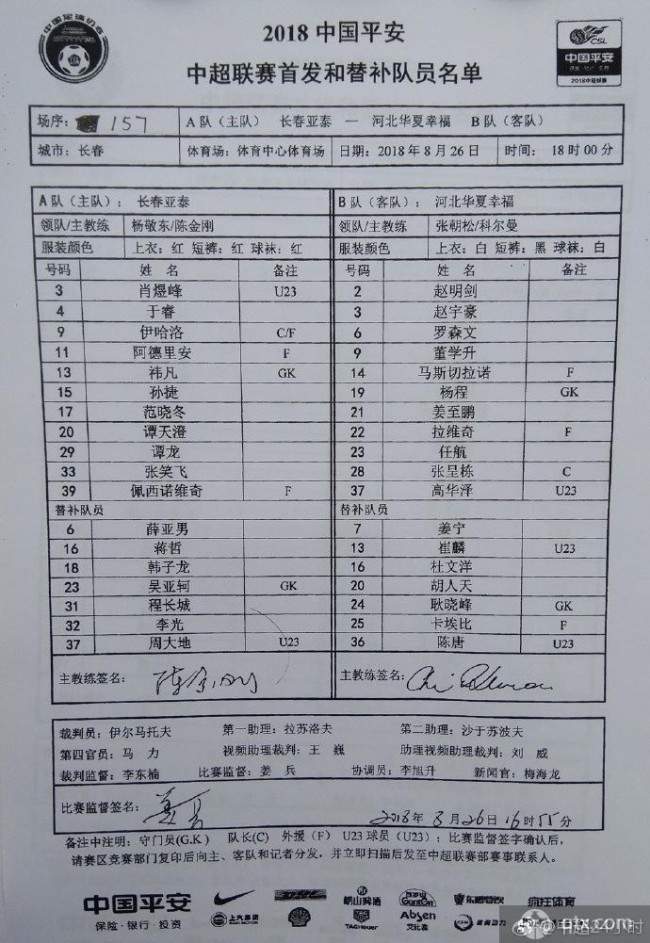 中国足球协会
2018 中国平安
中超联赛首发和替补队员名单
CSL
中国平安
保险·银行·投资
2018中超联赛
场序： 157 A 队（主队） 长春亚泰 — 河北华夏幸福 B 队（客队）
城市：长春 体育场：体育中心体育场 日期：2018 年 8 月 26 日 时间： 18 时 00 分
A 队（主队）： 长春亚泰 B 队（客队）： 河北华夏幸福
领队/主教练 杨敬东/陈金刚 领队/主教练 张朝松/科尔曼
服装颜色 上衣：红 短裤：红 球袜：红 服装颜色 上衣：白 短裤：黑 球袜：白
号码 姓 名 备注 号码 姓 名 备注
3 肖煜峰 U23 2 赵明剑
4 于睿 3 赵宇豪
9 伊哈洛 C/F 6 罗森文
11 阿德里安 F 9 董学升
13 祎凡 GK 14 马斯切拉诺 F
15 孙捷 19 杨程 GK
17 范晓冬 21 姜至鹏
20 谭天澄 22 拉维奇 F
29 谭龙 23 任航
33 张笑飞 28 张呈栋 C
39 佩西诺维奇 F 37 高华泽 U23
替补队员 替补队员
6 薛亚男 7 姜宁
16 蒋哲 13 崔麟 U23
18 韩子龙 16 杜文洋
23 吴亚轲 GK 20 胡人天
31 程长城 24 耿晓峰 GK
32 李光 25 卡埃比 F
37 周大地 U23 36 陈唐 U23
主教练签名： 陈金刚 主教练签名：
裁判员：伊尔马托夫 第一助理：拉苏洛夫 第二助理：沙于苏波夫
第四官员：马 力 视频助理裁判：王 巍 助理视频助理裁判：刘 威
裁判监督：李东楠 比赛监督：姜 兵 协调员：李旭升 新闻官：梅海龙
比赛监督签名： 2018年 8 月 26 日 16 时 55 分
备注中注明：守门员(G.K) 队长(C) 外援（F） U23 球员（U23）；比赛监督签字确认后，
请赛区竞赛部门复印后向主、客队和记者分发，并立即扫描后发至中超联赛部赛事联系人。
中国平安
保险·银行·投资
DHL
崂山啤酒
东鹏特饮
疯狂体育
上汽集团
TAGHeuer
Absen
艾比森
@中超24小时